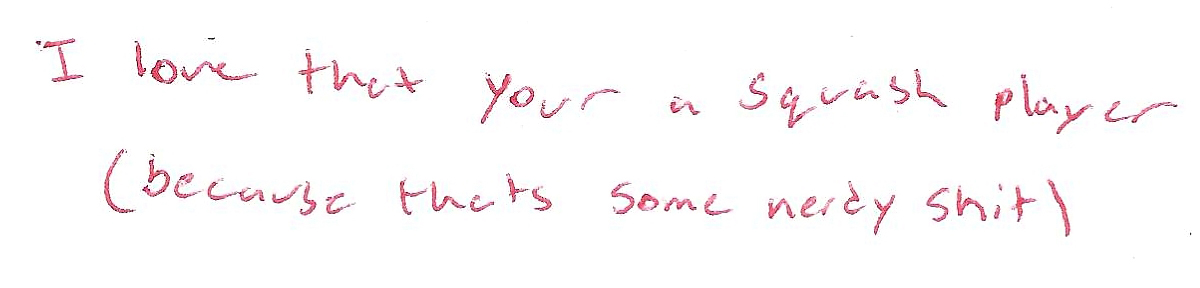 I love that your a squash player
(because thats some nerdy shit)